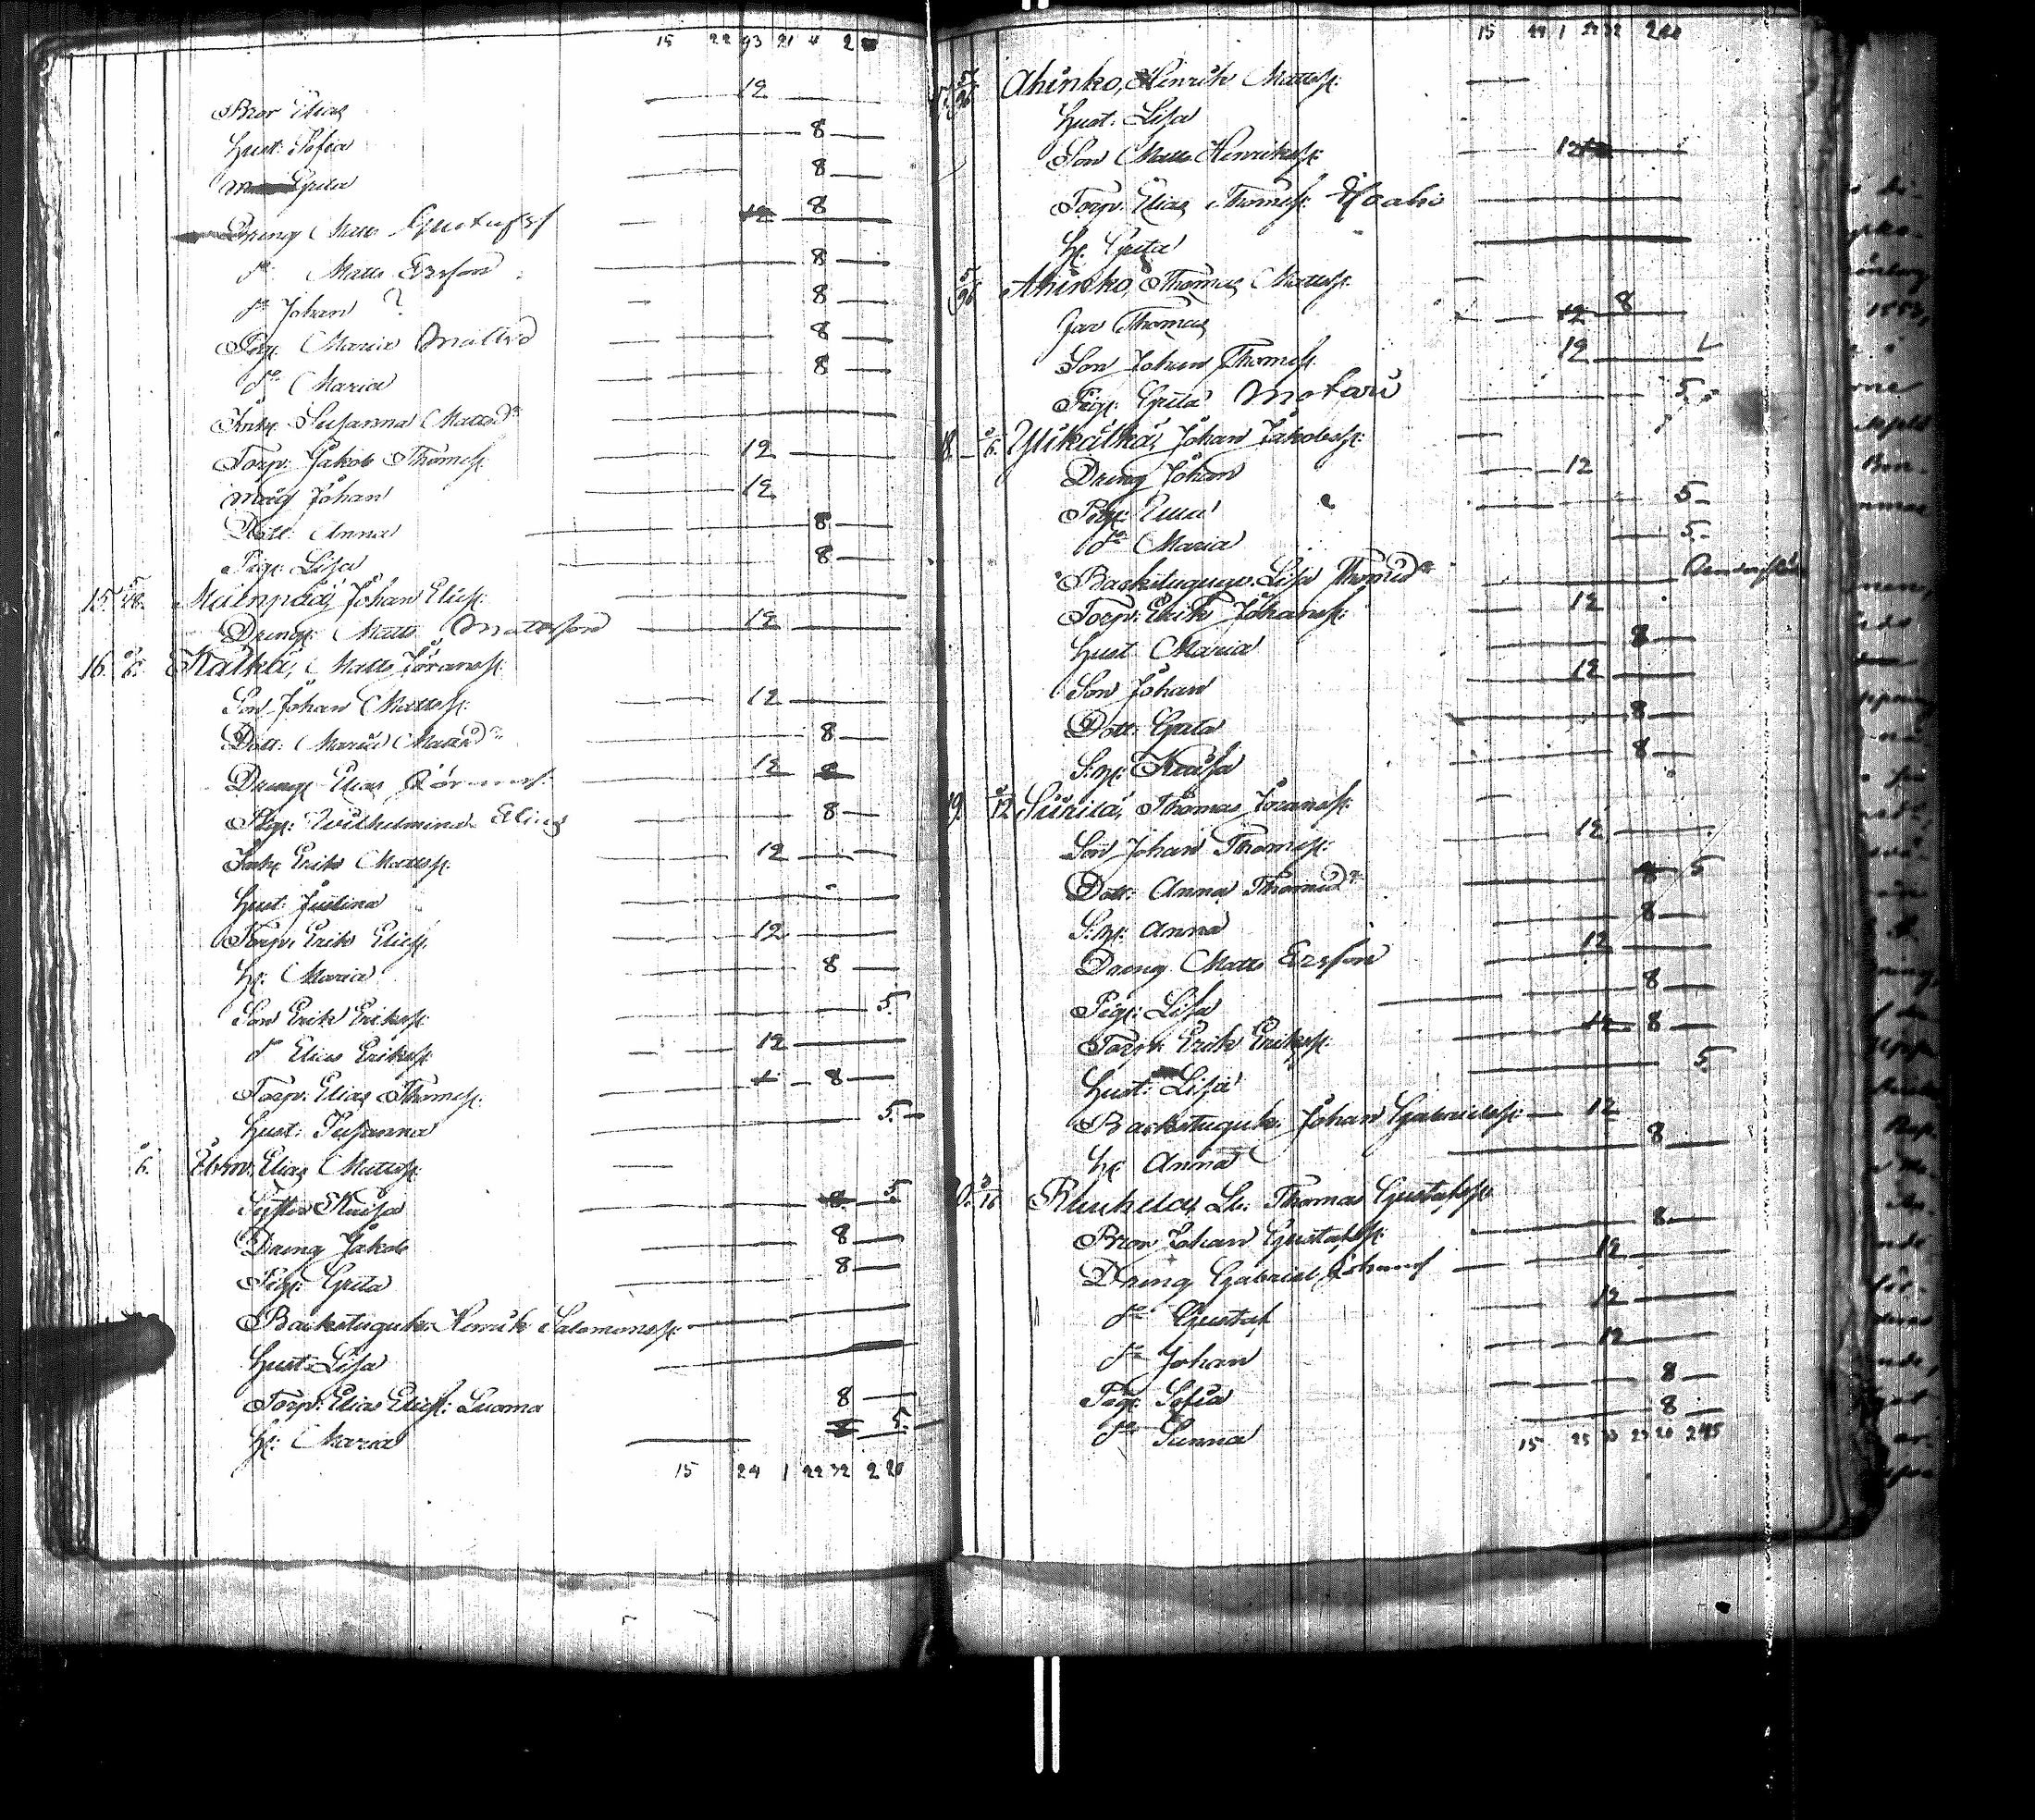 15 22 93 21 4 2
Bror Elias 12
Hust: Sofia 8
Greta 8
Dreng Matts Gustafsf 12 8
do Matts Ersson 8
do Johan ? 8
Pig: Maria Mattsd 8
do Maria 8
Susanna Mattsdr
Torp: Jakob Thomess. 12
Måg Johan 12
Dott: Anna 8
Pig: Lisa 8
15. Johan Eliess.
Dreng: Matts Mattsson 12
16. 6. Kälkä, Matts Jöranss.
Son Johan Mattss. 12
Dott: Maria Mattsdr 8
Dreng Elias 12 8
Pig: Wilhelmina Elias 8
Erik Mattss. 12
Hust: Justina
Torp: Erik Eliess. 12
H: Maria 8
Son Erik Erikss. 5.
do Elias Erikss. 12
Torp: Elias Thomess. 8
Hust: Susanna 5.
6. Elias Mattss.
Syster Kaisa 8. 5.
Dreng Jakob 8
Pig: Greta 8
Backstuguk: Henrik Salomonss.
Hust: Lisa
Torp: Elias Eliess: Luoma 8
H: Maria 5.
15 24 1 22 32 2 20
15 24 1 22 32 2 20
5/96 Ahinko, Henrik Mattss.
Hust: Lisa
Son Matts Henrikss. 12
Torp: Elias Thomess:
H: Greta
5/96 Ahinko, Thomas Mattss.
Thomas 12 8
Son Johan Thomess. 12
Pig: Greta 5.
18. 6. Ylikälkä, Johan Jakobss:
Dreng Johan 12
Pig: 5.
do Maria 5.
Lisa Thomsdr
Torp: Erik Johanss: 12
Hust Maria 8
Son Johan 12
Dott: Greta 8
S:h: Kaisa 8
19. 12 Thomas Jöranss.
Son Johan Thomess: 12
Dott: Anna Thomsdr 8 5
S:h: Anna 8
Dreng Matts Ersson 12
Pig: Lisa 8
Torp: Erik Erikss. 12 8
Hust: Lisa 5
Backstuguk: Johan Gabrielss: 12
H: Anna 8
20. 16 Thomas Gustafss.
Bror Johan Gustafss: 8
Dreng Gabriel Johansf 12
do Gustaf 12
do Johan 12
Pig: Sofia 8
do Sanna 8
15 25 23 20 2 45